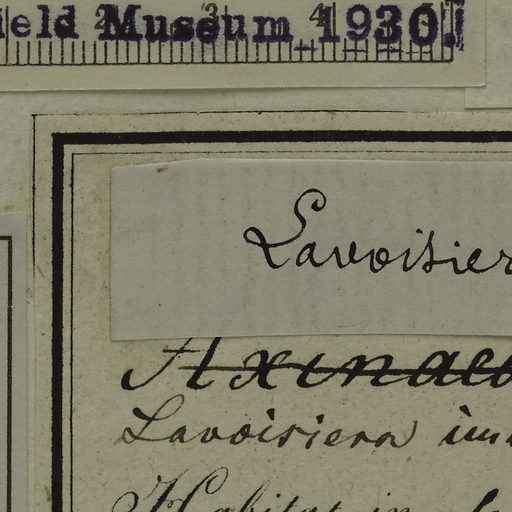 ield Museum_1930!
2 3 4 5
Lavoisier
Axinaea
Lavoisiera im
Habitat in